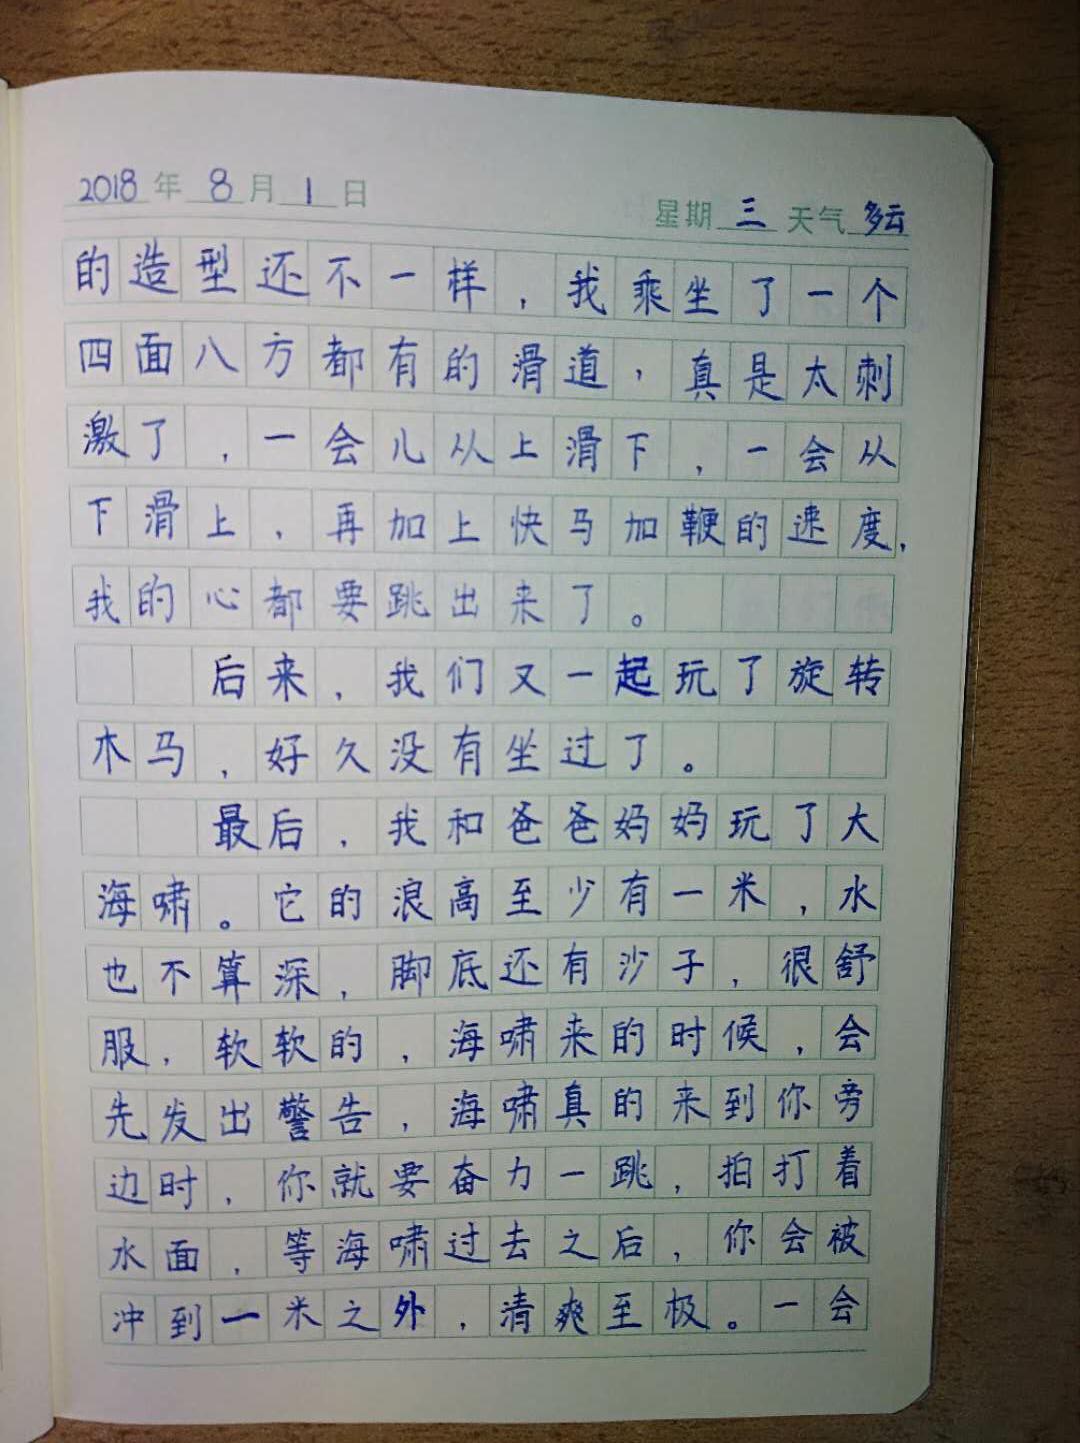 2018年8月1日 星期三 天气多云
的造型还不一样，我乘坐了一个
四面八方都有的滑道，真是太刺
激了，一会儿从上滑下，一会从
下滑上，再加上快马加鞭的速度，
我的心都要跳出来了。
后来，我们又一起玩了旋转
木马，好久没有坐过了。
最后，我和爸爸妈妈玩了大
海啸。它的浪高至少有一米，水
也不算深，脚底还有沙子，很舒
服，软软的，海啸来的时候，会
先发出警告，海啸真的来到你旁
边时，你就要奋力一跳，拍打着
水面，等海啸过去之后，你会被
冲到一米之外，清爽至极。一会